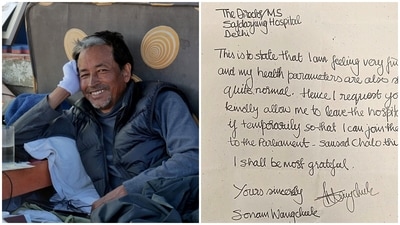 The Director/MS
Safdarjung Hospital
Delhi
This is to state that I am feeling very
and my health parameters are also
quite normal. Hence I request you
kindly allow me to leave the
if temporarily so that I can join the
to the Parliament - Sansad Chalo
I shall be most grateful.
Yours sincerely
Sonam Wangchuk